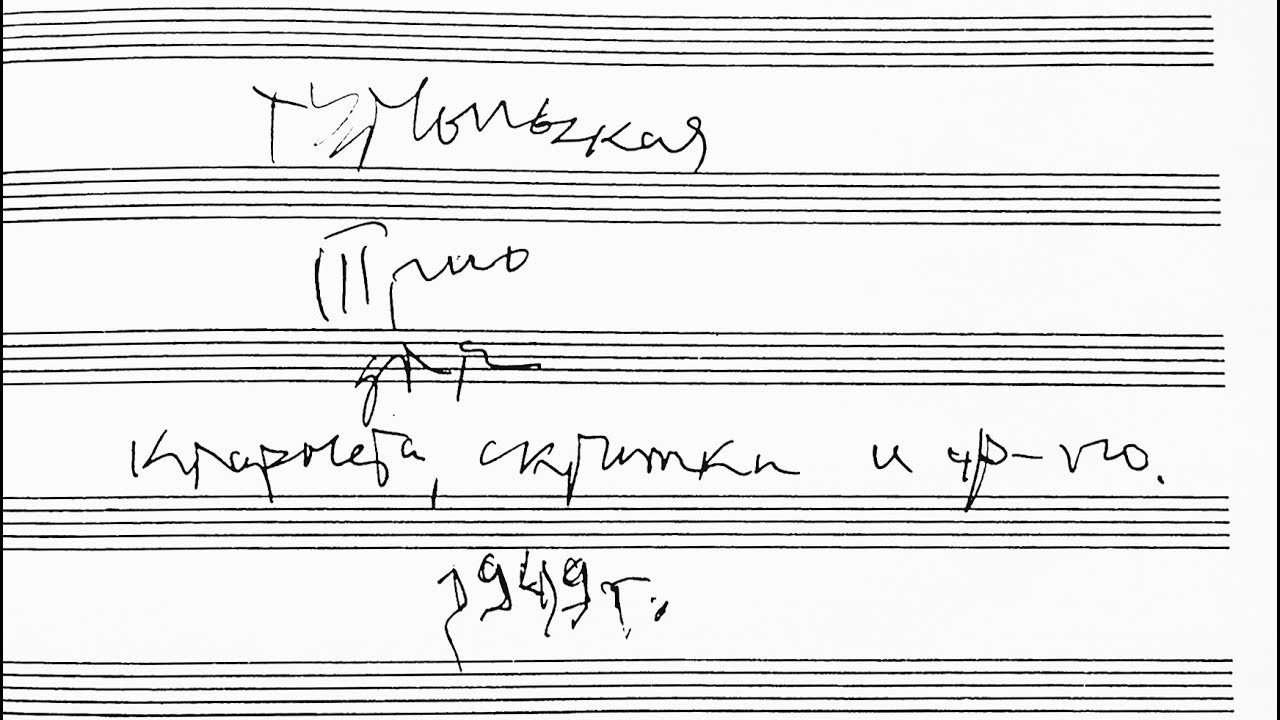 Г. Уствольская
Трио
для
кларнета, скрипки и ф-но.
1949 г.